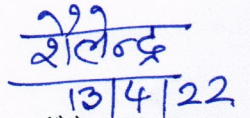 शैलेन्द्र
13/4/22